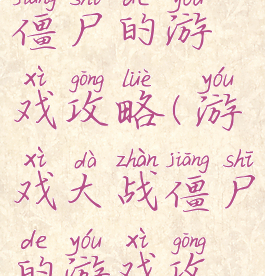 jiāng shī de yóu
僵尸的游
xì gōng lüè yóu
戏攻略(游
xì dà zhàn jiāng shī
戏大战僵尸
de yóu xì gōng
的游戏攻